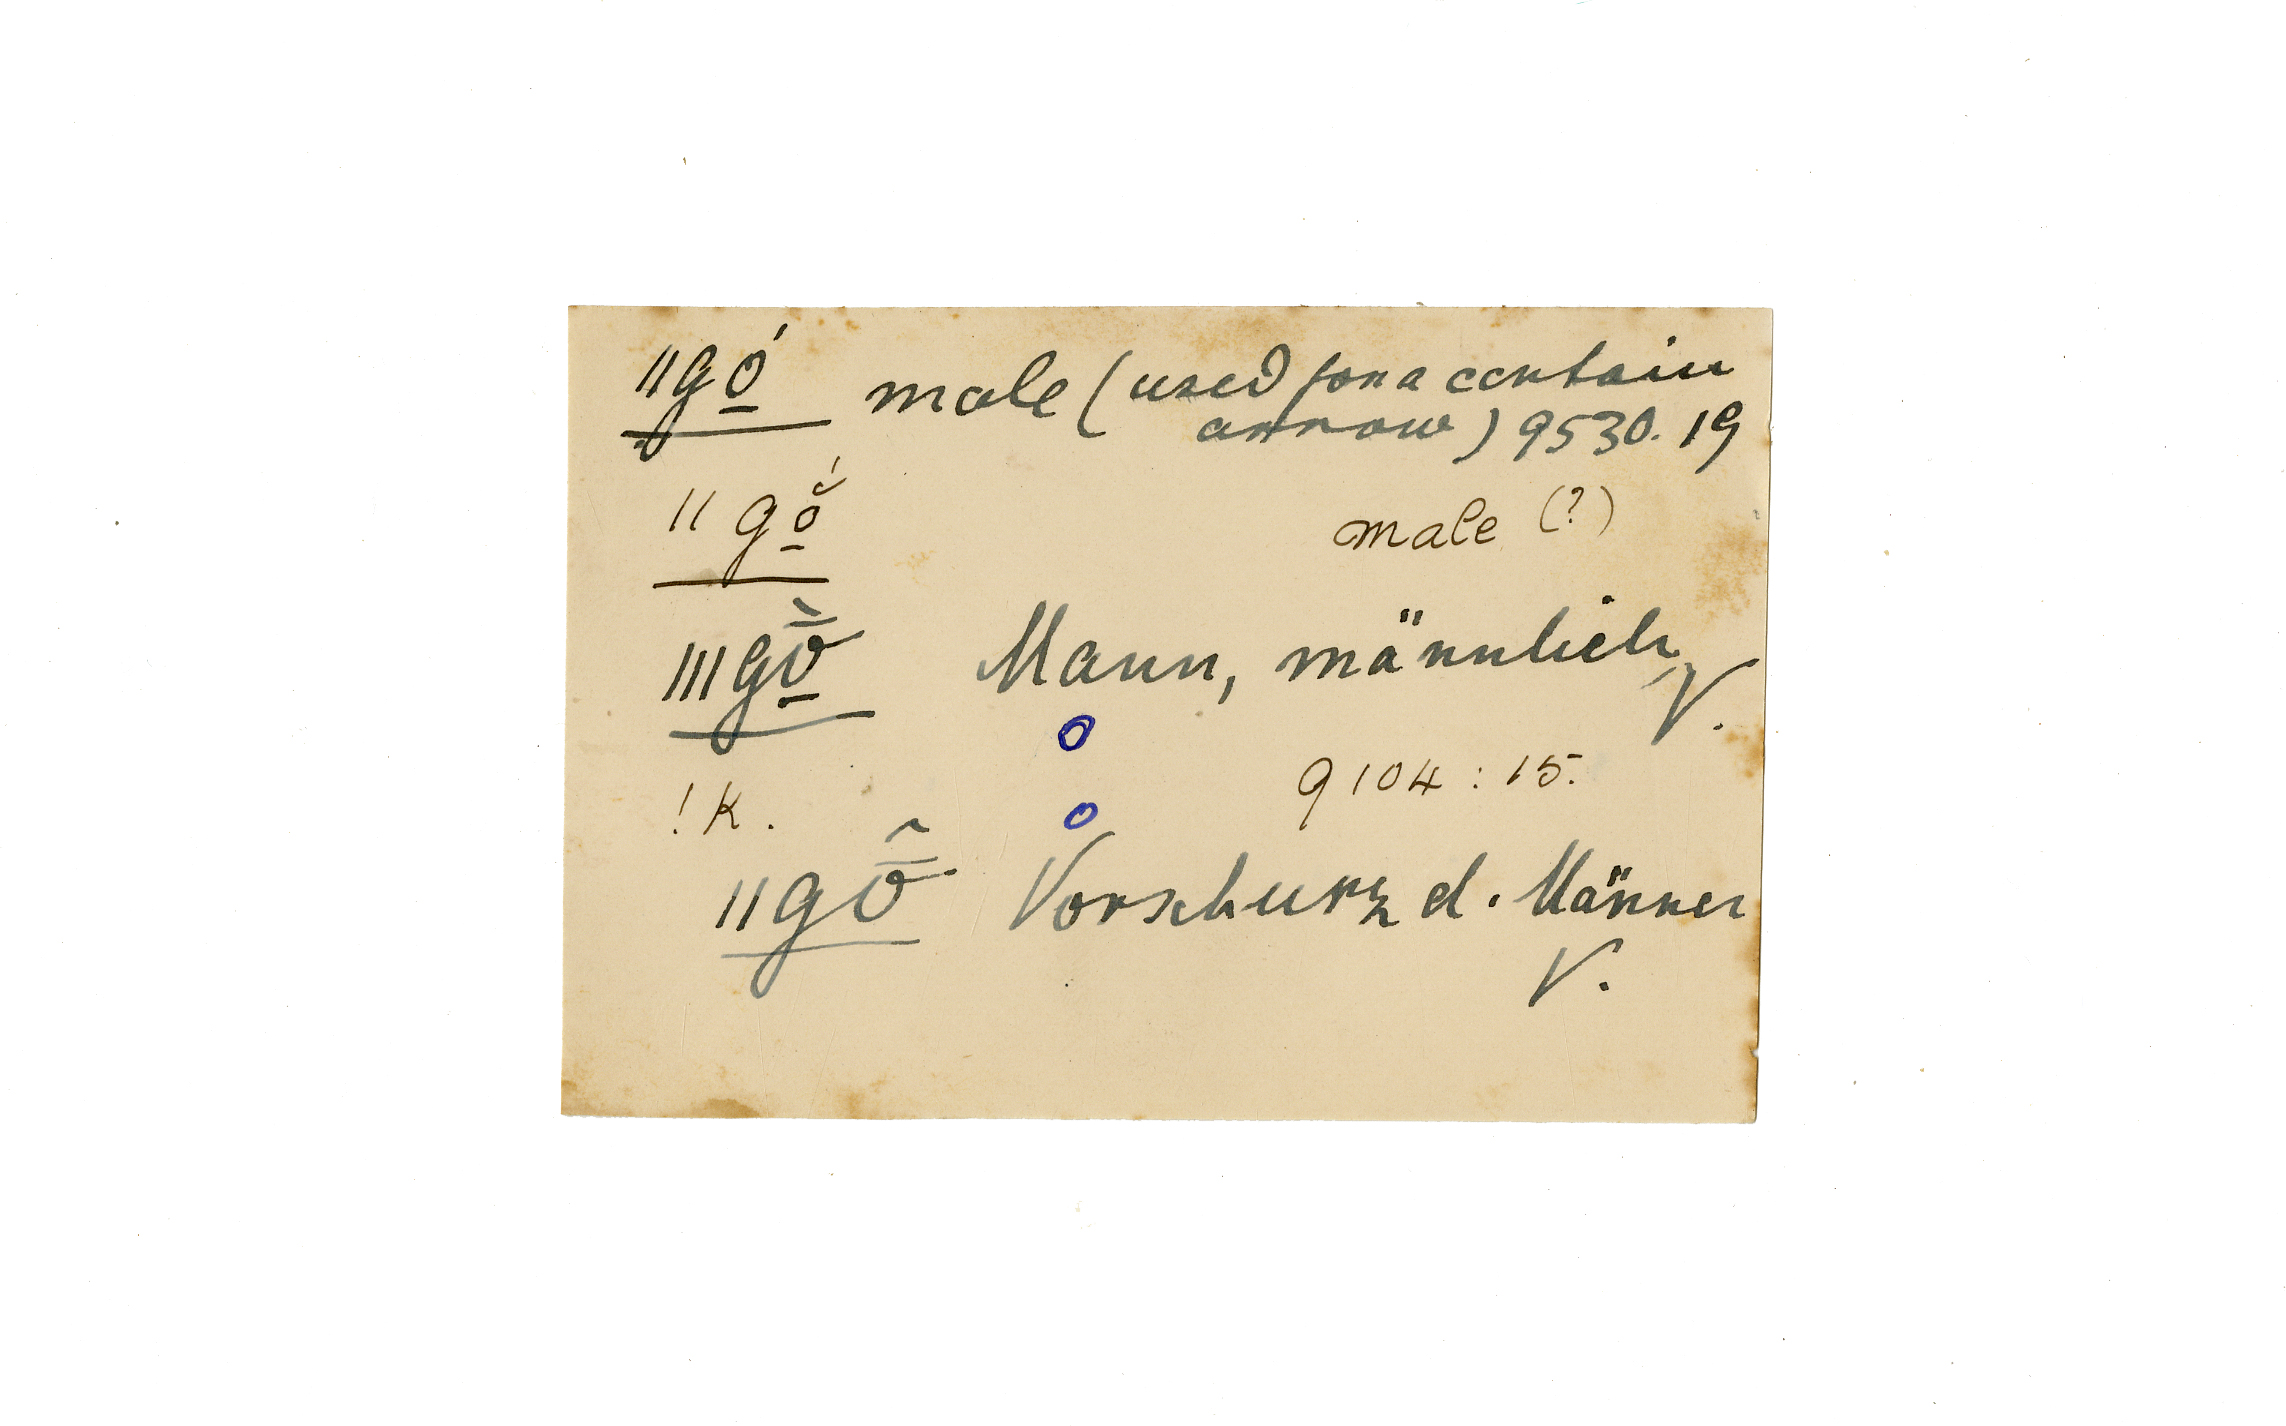 ǁgó̱ male (used for a certain
arrow) 9530. 19
ǁ gŏ̱́ male (?)
ǀǀǀgṑ̱ Mann, männlich, V.
! K. 9104 : 15.
ǁgō̂ Vorschurz d. Männer
V.